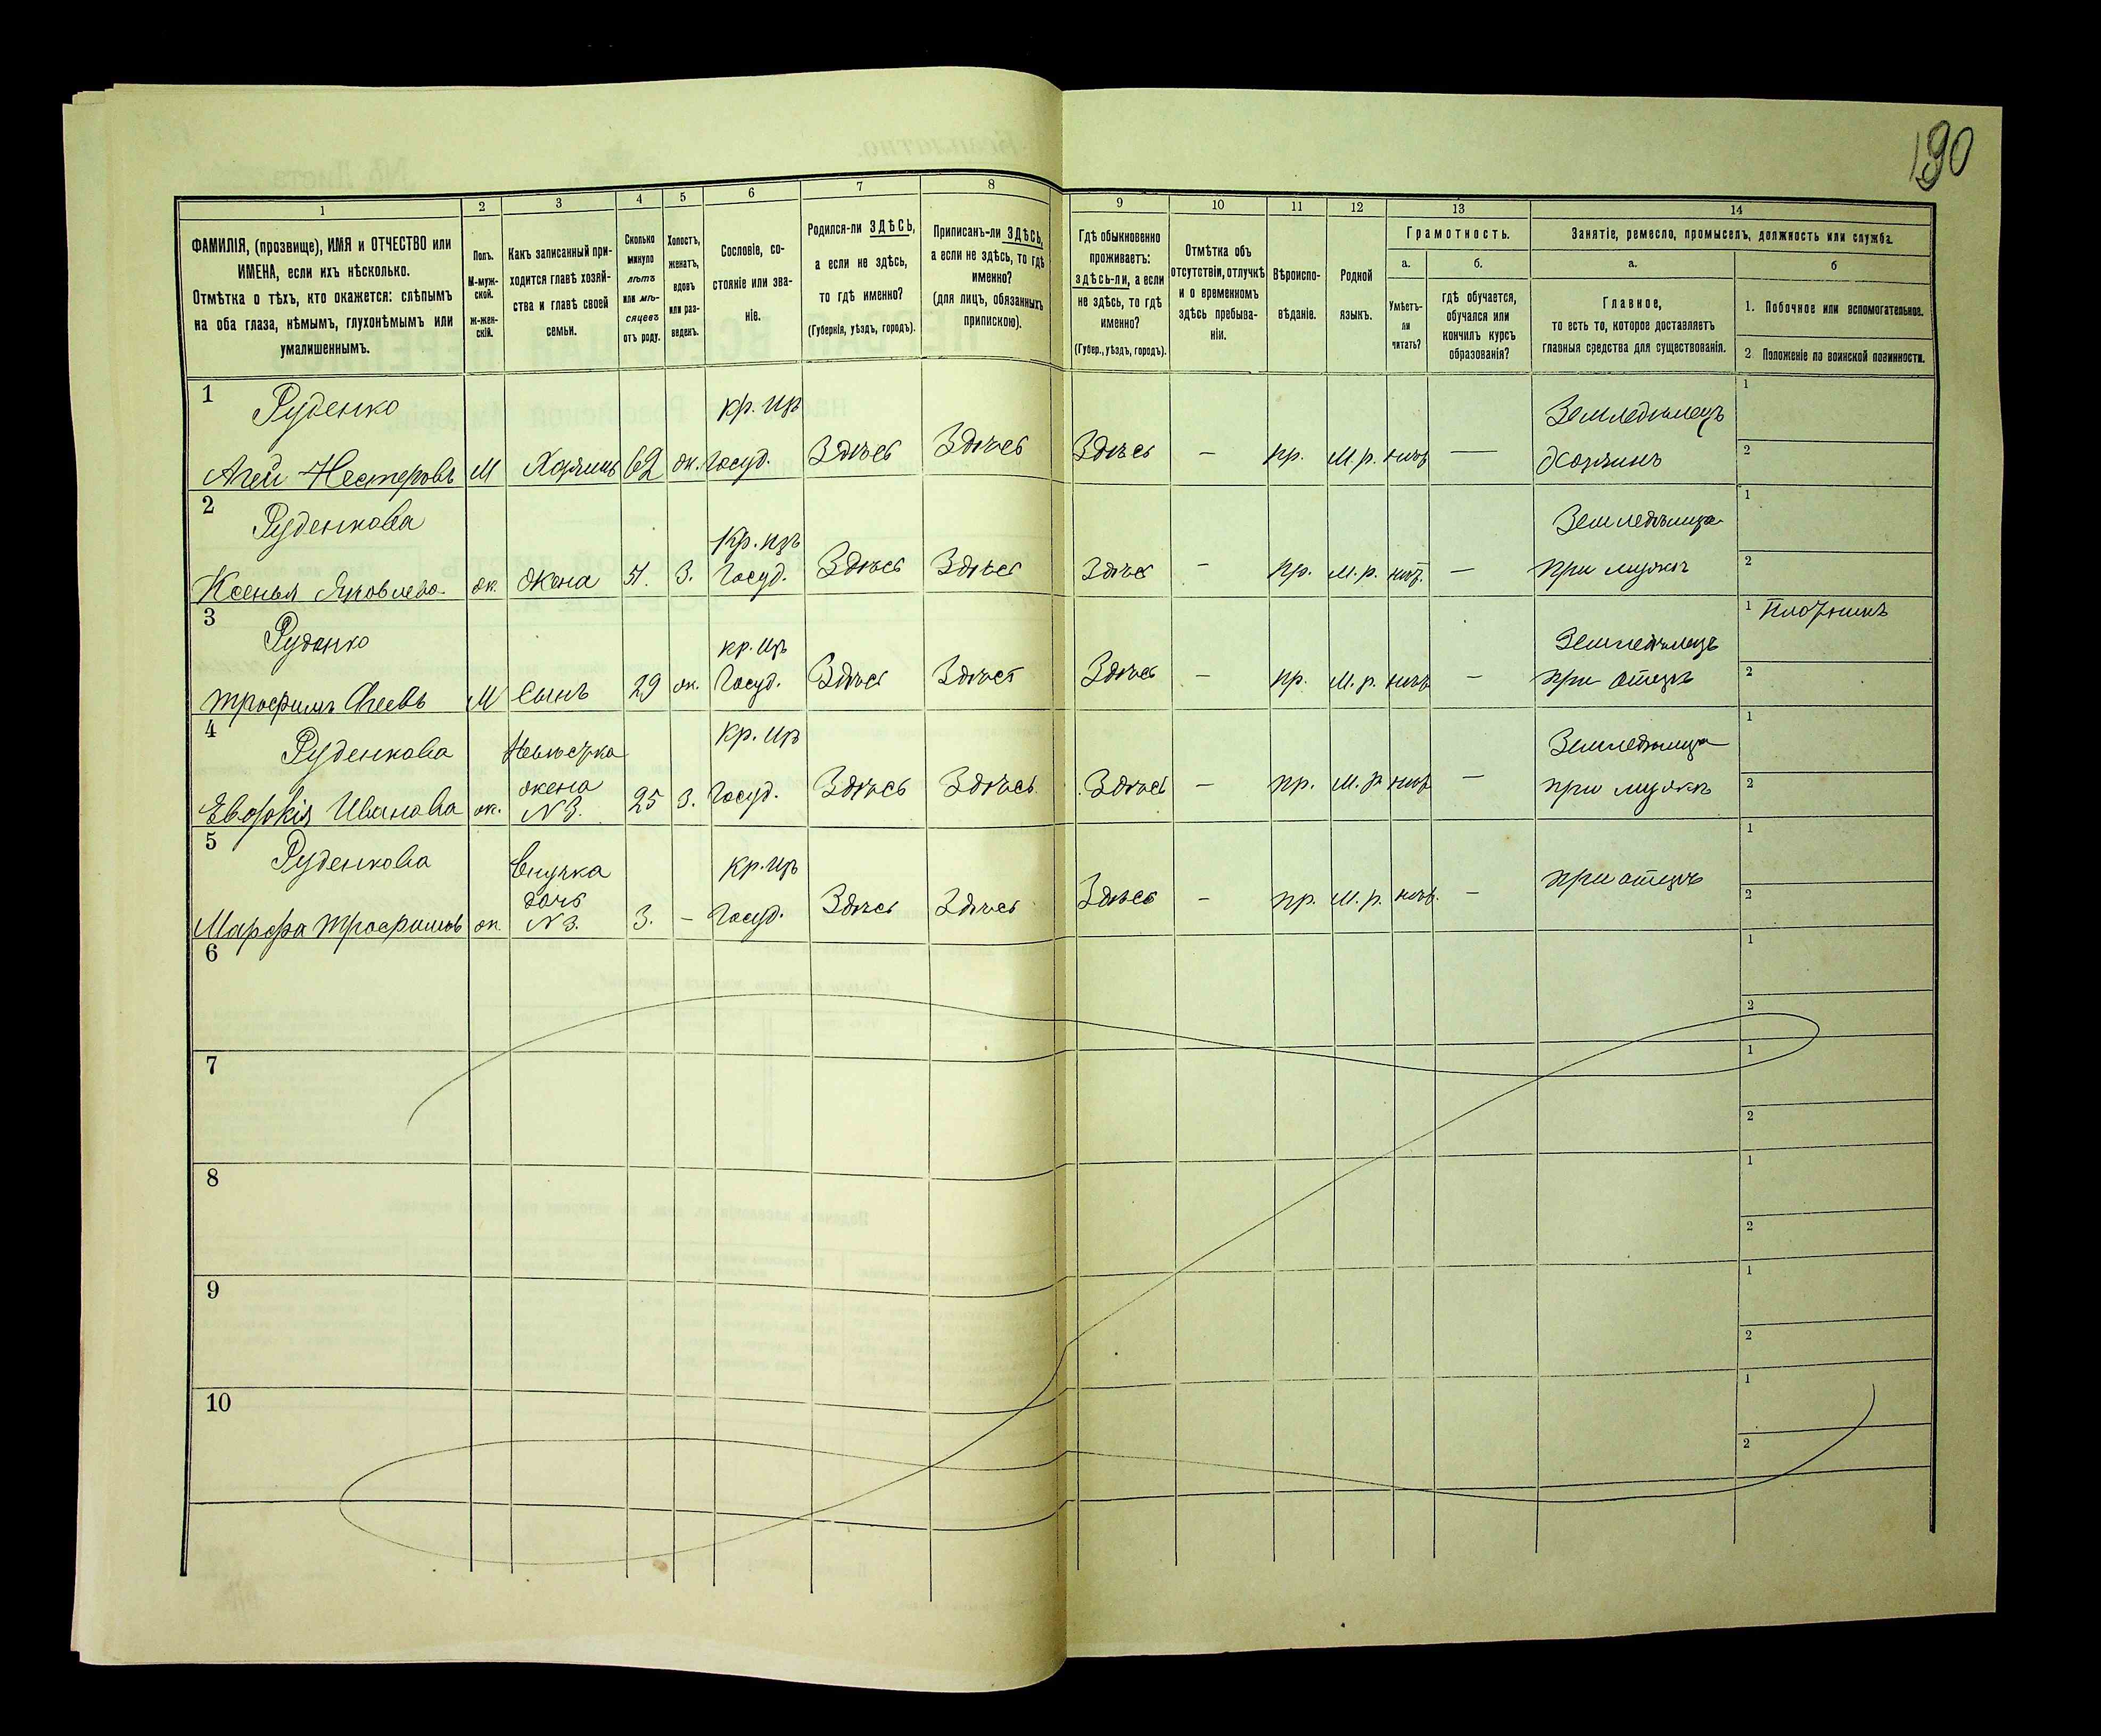 190
1
2
3
4
5
6
7
8
9
10
11
12
13
14
ФАМИЛІЯ, (прозвище), ИМЯ и ОТЧЕСТВО или
ИМЕНА, если ихъ нѣсколько.
Отмѣтка о тѣхъ, кто окажется: слѣпымъ
на оба глаза, нѣмымъ, глухонѣмымъ или
умалишеннымъ.
Полъ.
М-муж-
ской.
Ж-жен-
скій.
Какъ записанный при-
ходится главѣ хозяй-
ства и главѣ своей
семьи.
Сколько
минуло
лѣтъ
или мѣ-
сяцевъ
отъ роду.
Холостъ,
женатъ,
вдовъ
или раз-
веденъ.
Сословіе, со-
стояніе или зва-
ніе.
Родился-ли ЗДѢСЬ,
а если не здѣсь,
то гдѣ именно?
(Губернія, уѣздъ, городъ).
Приписанъ-ли ЗДѢСЬ,
а если не здѣсь, то гдѣ
именно?
(для лицъ, обязанныхъ
припискою).
Гдѣ обыкновенно
проживаетъ:
здѣсь-ли, а если
не здѣсь, то гдѣ
именно?
(Губер., уѣздъ, городъ).
Отмѣтка объ
отсутствіи, отлучкѣ
и о временномъ
здѣсь пребыва-
ніи.
Вѣроиспо-
вѣданіе.
Родной
языкъ.
Грамотность.
а.
Умѣетъ-
ли
читать?
б.
гдѣ обучается,
обучался или
кончилъ курсъ
образованія?
Занятіе, ремесло, промыселъ, должность или служба.
а.
Главное,
то есть то, которое доставляетъ
главныя средства для существованія.
б
1. Побочное или вспомогательное.
2 Положеніе по воинской повинности.
1
Руденко кр. изъ Земледѣлецъ 1
Агей Нестеровъ М Хозяинъ 62 ж. Госуд. Здѣсь Здѣсь Здѣсь — пр. М. р. нѣтъ — Хозяинъ 2
2
Руденкова Кр. изъ Земледѣлица 1
Ксенья Яковлева ж. Жена 51. З. Госуд. Здѣсь Здѣсь Здѣсь — пр. М. р. нѣт. — при мужѣ 2
3
Руденко кр. изъ Земледѣлецъ 1 Плотникъ
Трофимъ Агеевъ М Сынъ 29 ж. Госуд. Здѣсь Здѣсь Здѣсь — пр. М. р. нѣтъ — при отцѣ 2
4
Руденкова Невѣстка Кр. изъ Земледѣлица 1
жена
Евдокія Иванова ж. N 3. 25 З. Госуд. Здѣсь Здѣсь Здѣсь — пр. М. р. нѣтъ — при мужѣ 2
5
Руденкова Внучка Кр. изъ при отцѣ 1
дочь
Марфа Трофимов ж. N 3. 3. — Госуд. Здѣсь Здѣсь Здѣсь — пр. М. р. нѣтъ. — 2
6
1
2
7
1
2
8
1
2
9
1
2
10
1
2